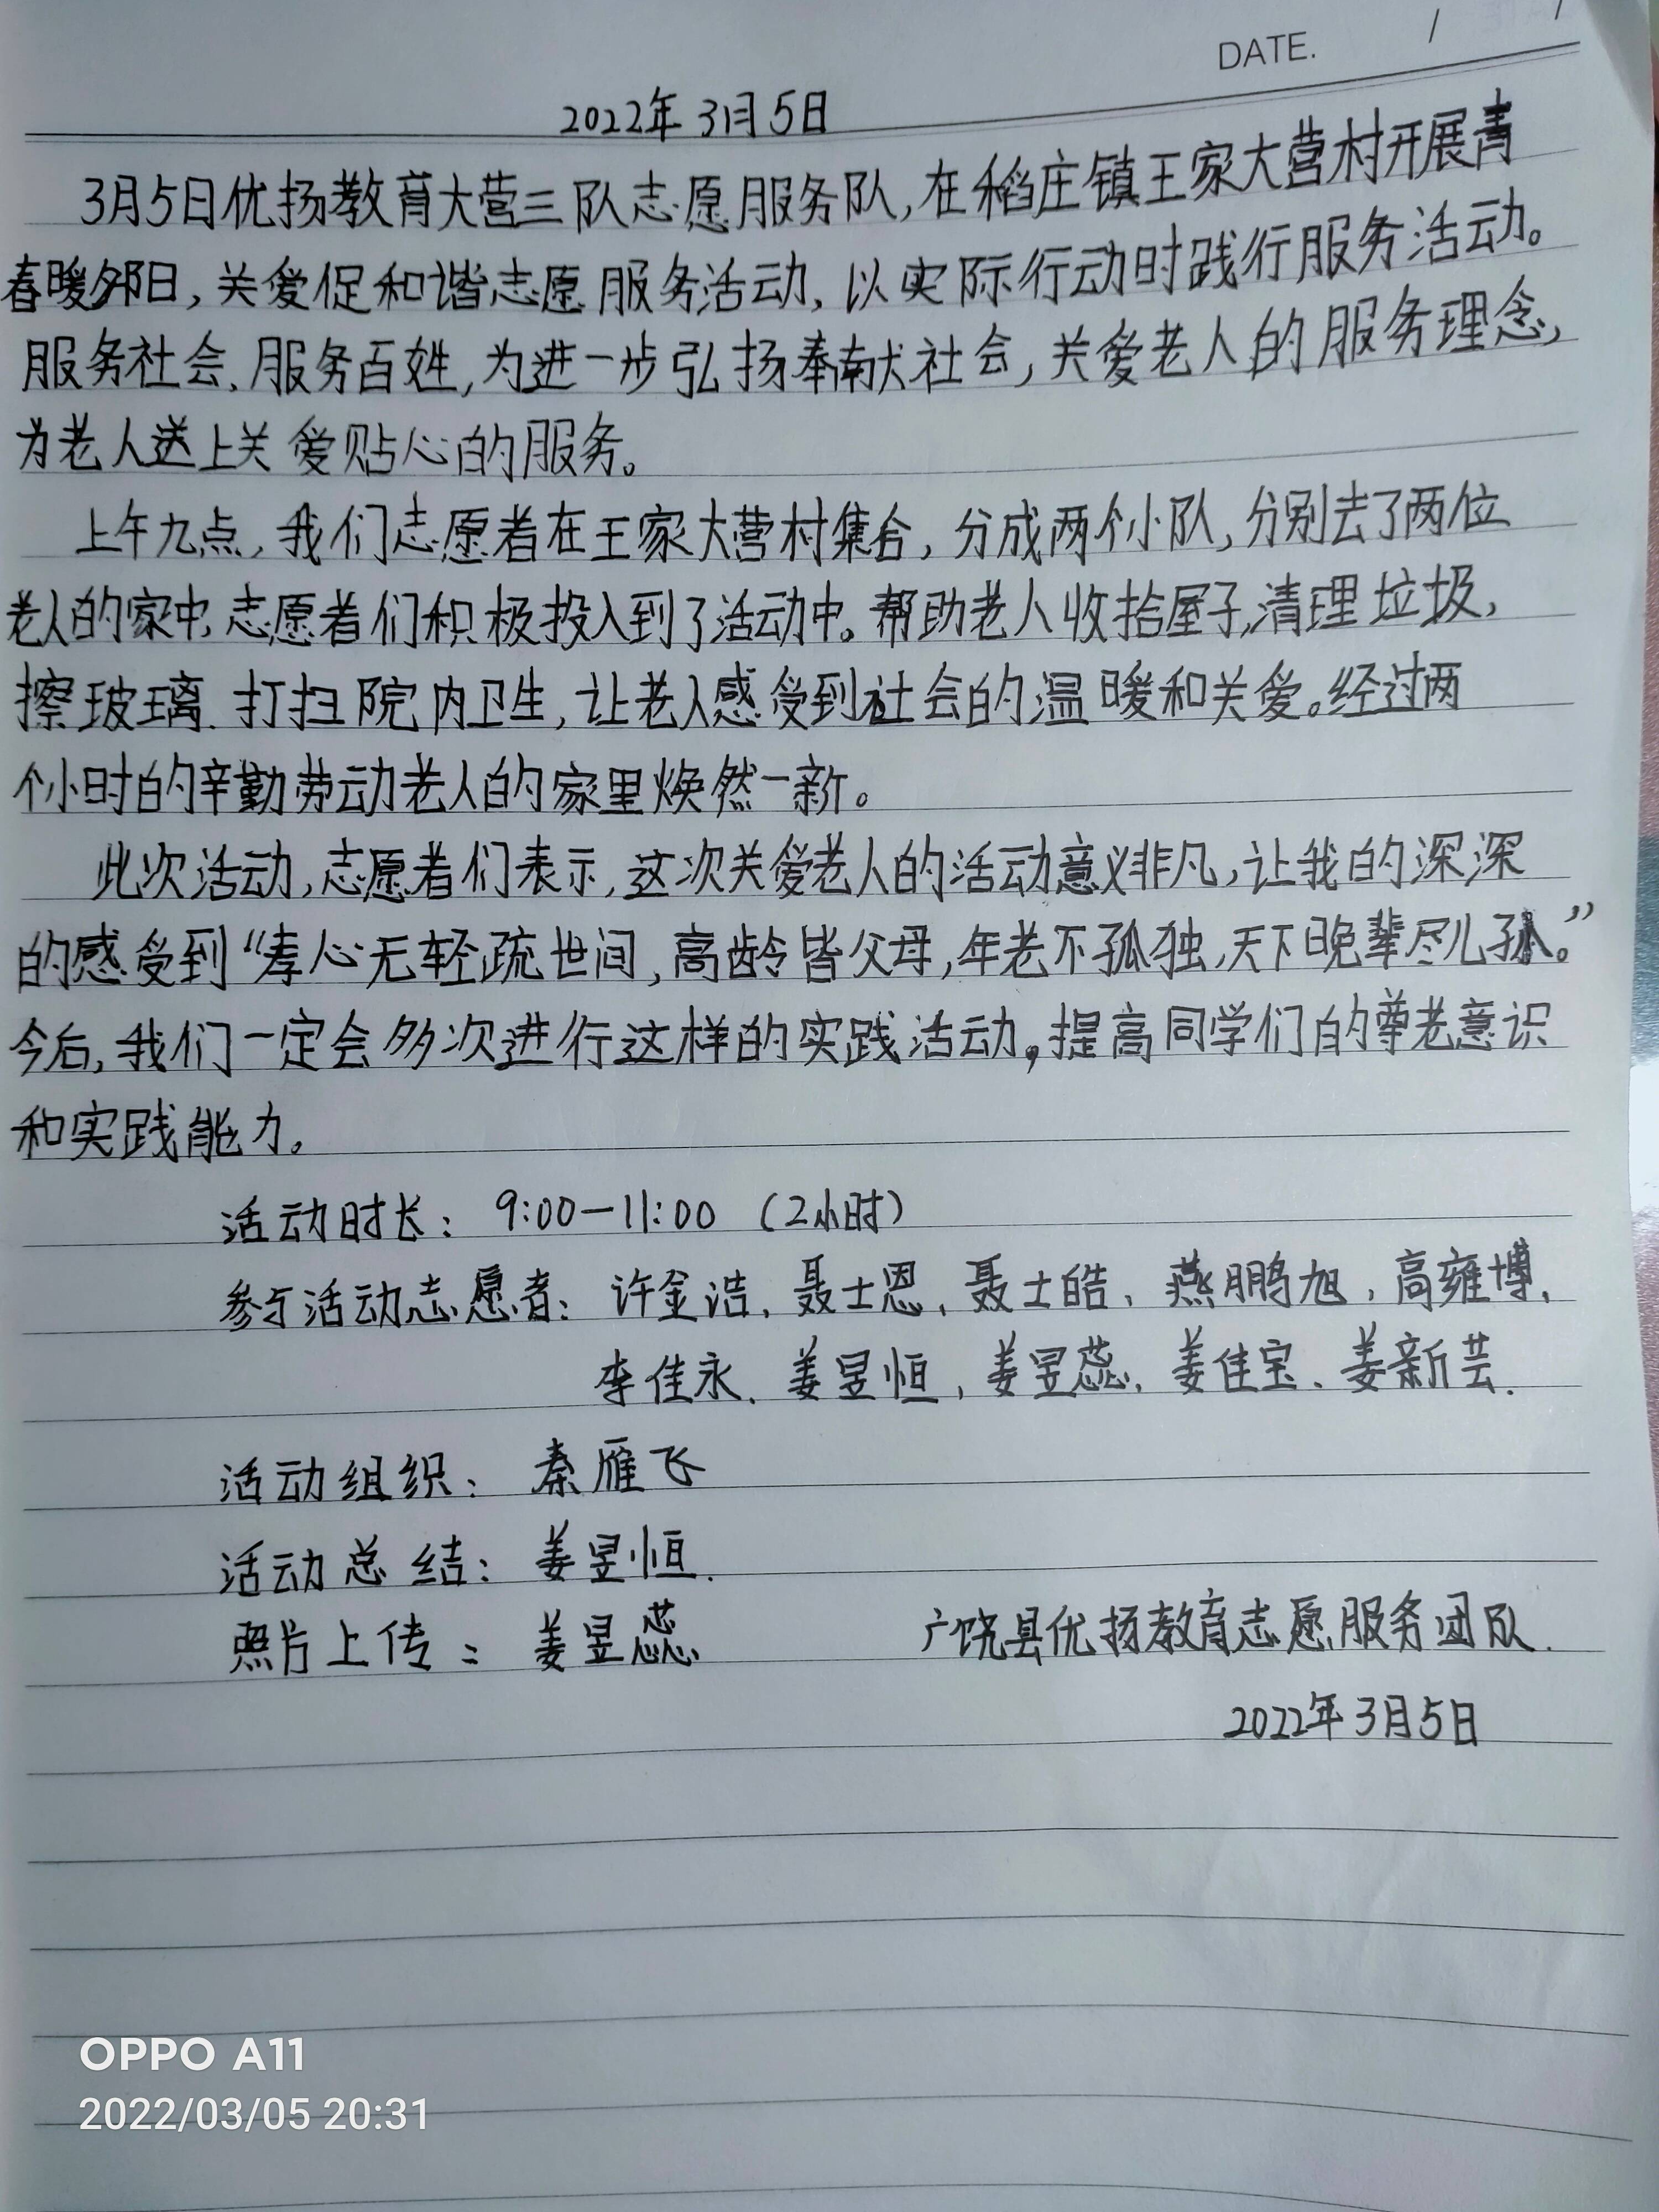 DATE. / /
2022年3月5日
3月5日优扬教育大营三队志愿服务队,在稻庄镇王家大营村开展青
春暖夕阳,关爱促和谐志愿服务活动,以实际行动时践行服务活动。
服务社会、服务百姓,为进一步弘扬奉献社会,关爱老人的服务理念,
为老人送上关爱贴心的服务。
上午九点,我们志愿者在王家大营村集合,分成两个小队,分别去了两位
老人的家中,志愿者们积极投入到了活动中。帮助老人收拾屋子,清理垃圾,
擦玻璃.打扫院内卫生,让老人感受到社会的温暖和关爱。经过两
个小时的辛勤劳动老人的家里焕然一新。
此次活动,志愿者们表示,这次关爱老人的活动意义非凡,让我的深深
的感受到“孝心无轻疏世间,高龄皆父母,年老不孤独,天下晚辈尽儿孙。”
今后,我们一定会多次进行这样的实践活动,提高同学们的尊老意识
和实践能力。
活动时长:9:00-11:00(2小时)
参与活动志愿者:许金浩、聂士恩、聂士皓、燕鹏旭、高雍博、
李佳永、姜昱恒、姜昱蕊、姜佳宝、姜新芸.
活动组织:秦雁飞
活动总结:姜昱恒.
照片上传:姜昱蕊 广饶县优扬教育志愿服务团队.
2022年3月5日
OPPO A11
2022/03/05 20:31